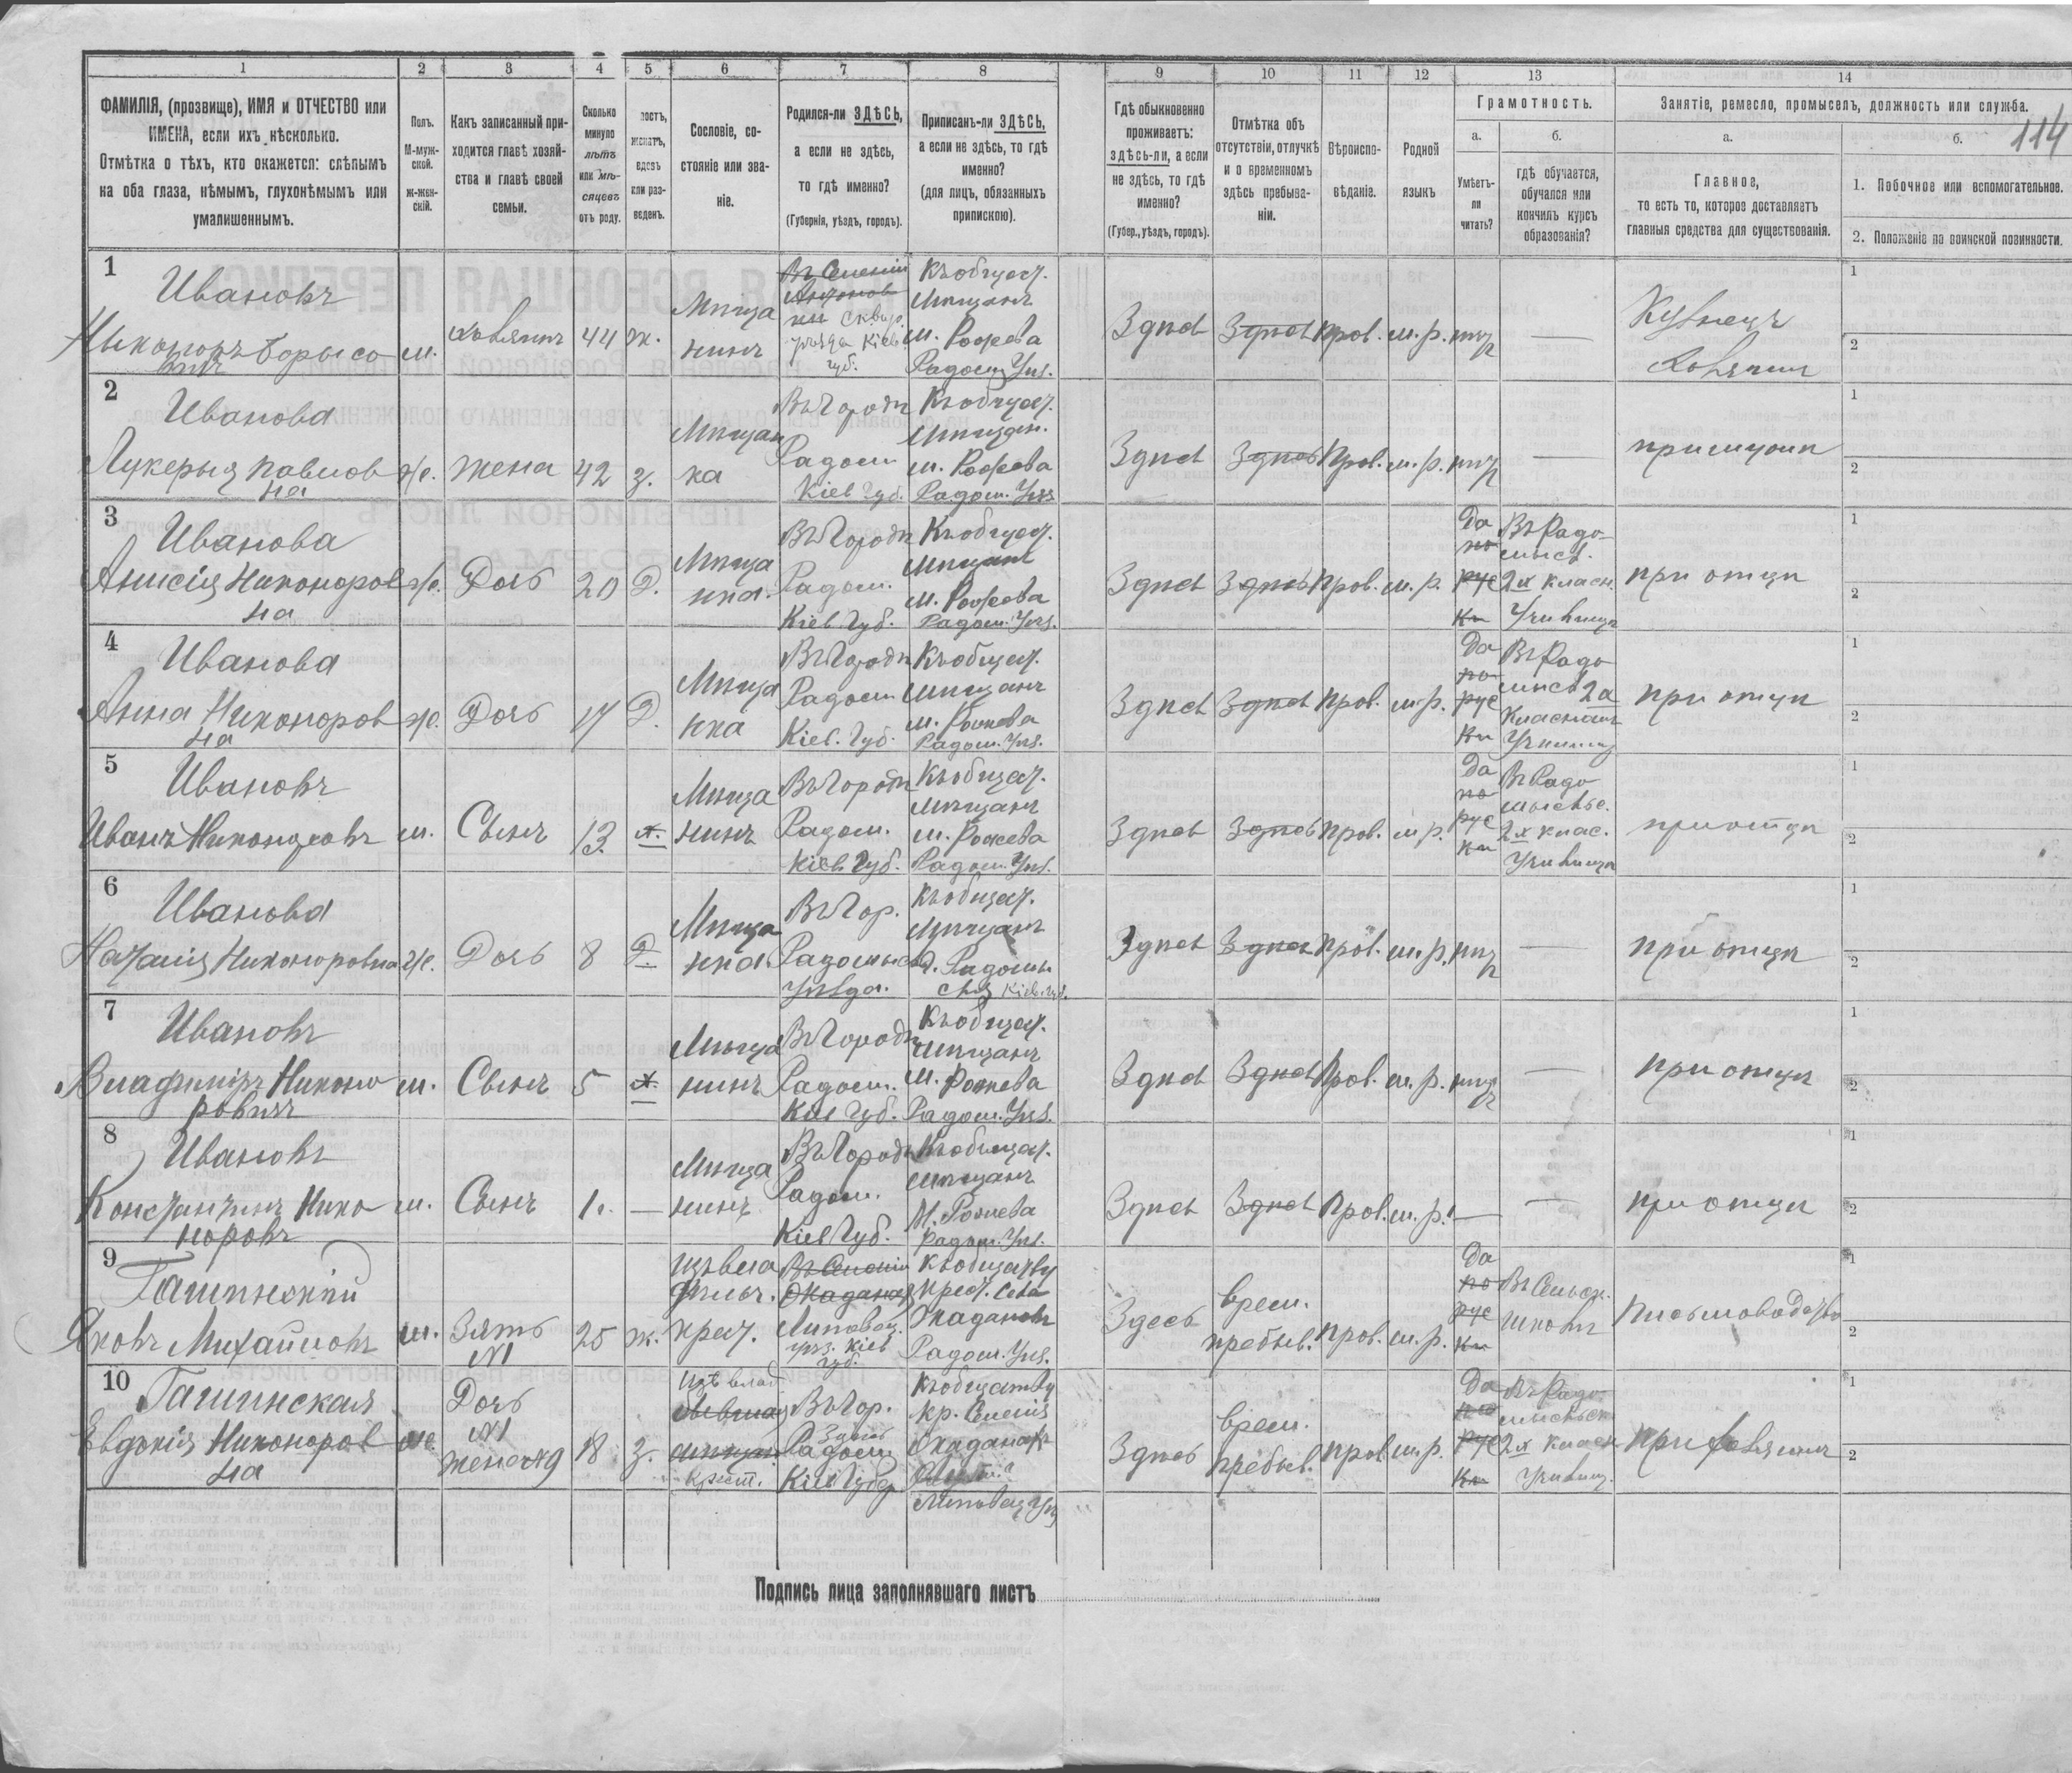 1 2 3 4 5 6 7 8 9 10 11 12 13 14
114
ФАМИЛІЯ, (прозвище), ИМЯ и ОТЧЕСТВО или
ИМЕНА, если ихъ нѣсколько.
Отмѣтка о тѣхъ, кто окажется: слѣпымъ
на оба глаза, нѣмымъ, глухонѣмымъ или
умалишеннымъ.
Полъ.
М-муж-
ской.
ж-жен-
скій.
Какъ записанный при-
ходится главѣ хозяй-
ства и главѣ своей
семьи.
Сколько
минуло
лѣтъ
или мѣ-
сяцевъ
отъ роду.
лостъ,
женатъ,
вдовъ
или раз-
веденъ.
Сословіе, со-
стояніе или зва-
ніе.
Родился-ли ЗДѢСЬ,
а если не здѣсь,
то гдѣ именно?
(Губернія, уѣздъ, городъ).
Приписанъ-ли ЗДѢСЬ,
а если не здѣсь, то гдѣ
именно?
(для лицъ, обязанныхъ
припискою).
Гдѣ обыкновенно
проживаетъ:
здѣсь-ли, а если
не здѣсь, то гдѣ
именно?
(Губер., уѣздъ, городъ).
Отмѣтка объ
отсутствіи, отлучкѣ
и о временномъ
здѣсь пребыва-
ніи.
Вѣроиспо-
вѣданіе.
Родной
языкъ
Грамотность.
а.
Умѣетъ-
ли
читать?
б.
гдѣ обучается,
обучался или
кончилъ курсъ
образованія?
Занятіе, ремесло, промыселъ, должность или служба.
а.
Главное,
то есть то, которое доставляетъ
главныя средства для существованія.
б.
1. Побочное или вспомогательное.
2. Положеніе по воинской повинности.
1
Ивановъ
Никоноръ Борысо
вичъ
м.
хозяинъ
44
ж.
Мѣща
нинъ
Сквир.
уѣзда Кіев.
губ.
Къ общест.
мѣщанъ
м. Рожева
Радом. Уѣз.
Здѣсь
Здѣсь
прав.
м. р.
нѣт
—
Кузнецъ
Хозяинъ
1
2
2
Иванова
Лукерья Павлов
на
ж.
жена
42
з.
Мѣщан
ка
Въ городѣ
Радом
Кіев Губ.
Къ общест.
мѣщан.
м. Рожева
Радом. Уѣз
Здѣсь
Здѣсь
прав.
м. р.
нѣт
—
при мужѣ
1
2
3
Иванова
Анисія Никоноров
на
ж.
Дочь
20
Д.
Мѣща
нка.
Въ городѣ
Радом.
Кіев Губ.
Къ общест.
мѣщанъ
м. Рожева
Радом. Уѣз.
Здѣсь
Здѣсь
прав.
м. р.
Да
по
рус
ки
Въ Радо
мысл.
2х класн.
Училищѣ
при отцѣ
1
2
4
Иванова
Анна Никоноров
на
ж.
Дочь
17
Д.
Мѣща
нка
Въ городѣ
Радом
Кіев. Губ.
Къ общест.
мѣщанъ
м. Рожева
Радом. Уѣз.
Здѣсь
Здѣсь
прав.
м. р.
Да
по
рус
ки
Въ Радо
мысл 2х
Класномъ
Училищ
при отцѣ
1
2
5
Ивановъ
Иванъ Никоноровъ
м.
Сынъ
13
х.
Мѣща
нинъ
Въ городѣ
Радом.
Кіев. Губ.
Къ общест.
мѣщанъ
м. Рожева
Радом. Уѣз.
Здѣсь
Здѣсь
прав.
м р.
Да
по
рус
ки
Въ Радо
мысльс.
2х клас.
Училищѣ
при отцѣ
1
2
6
Иванова
Наталія Никоноровна
ж.
Дочь
8
Д.
Мѣща
нка.
Въ Гор.
Уѣзда.
Къ общест.
мѣщанъ
Кіев. губ.
Здѣсь
Здѣсь
прав.
м. р.
нѣт
—
при отцѣ
1
2
7
Ивановъ
Владиміръ Никоно
ровичъ
м.
Сынъ
5
х.
Мѣща
нинъ
Въ городѣ
Радом.
Кіев Губ.
Къ общест.
мѣщанъ
м. Рожева
Радом. Уѣз.
Здѣсь
Здѣсь
прав.
м. р.
нѣт
—
при отцѣ
1
2
8
Ивановъ
Константинъ Нико
норовъ
м.
Сынъ
1.
—
Мѣща
нинъ
Въ городѣ
Радом.
Кіев Губ.
Къ общест.
мѣщанъ
М. Рожева
Радом. Уѣз.
Здѣсь
Здѣсь
прав.
м. р.
—
—
при отцѣ
1
2
9
Яковъ Михайловъ
м.
Зять
№1
25
ж.
крест.
Липовец.
уѣз. Кіев
губ.
Къ обществу
крест. села
Радом. Уѣз.
Здесь
врем.
пребыв.
прав.
м. р.
Да
по
рус
ки
Въ Сельск.
школѣ
Письмоводство
1
2
10
Евдокія Никоноров
на
ж.
Дочь
№1
жена №9
18
з.
изъ влад.
крест.
Въ Гор.
Здѣсь
Радом
Кіев Губер
Къ обществу
кр. Селенія
Липовец Уѣз
Здѣсь
врем.
пребыв.
прав
м. р.
Да
по
рус
ки
Въ Радо
мысльск
2х класн
Училищ.
При хозяинѣ
1
2
Подпись лица заполнявшаго листъ